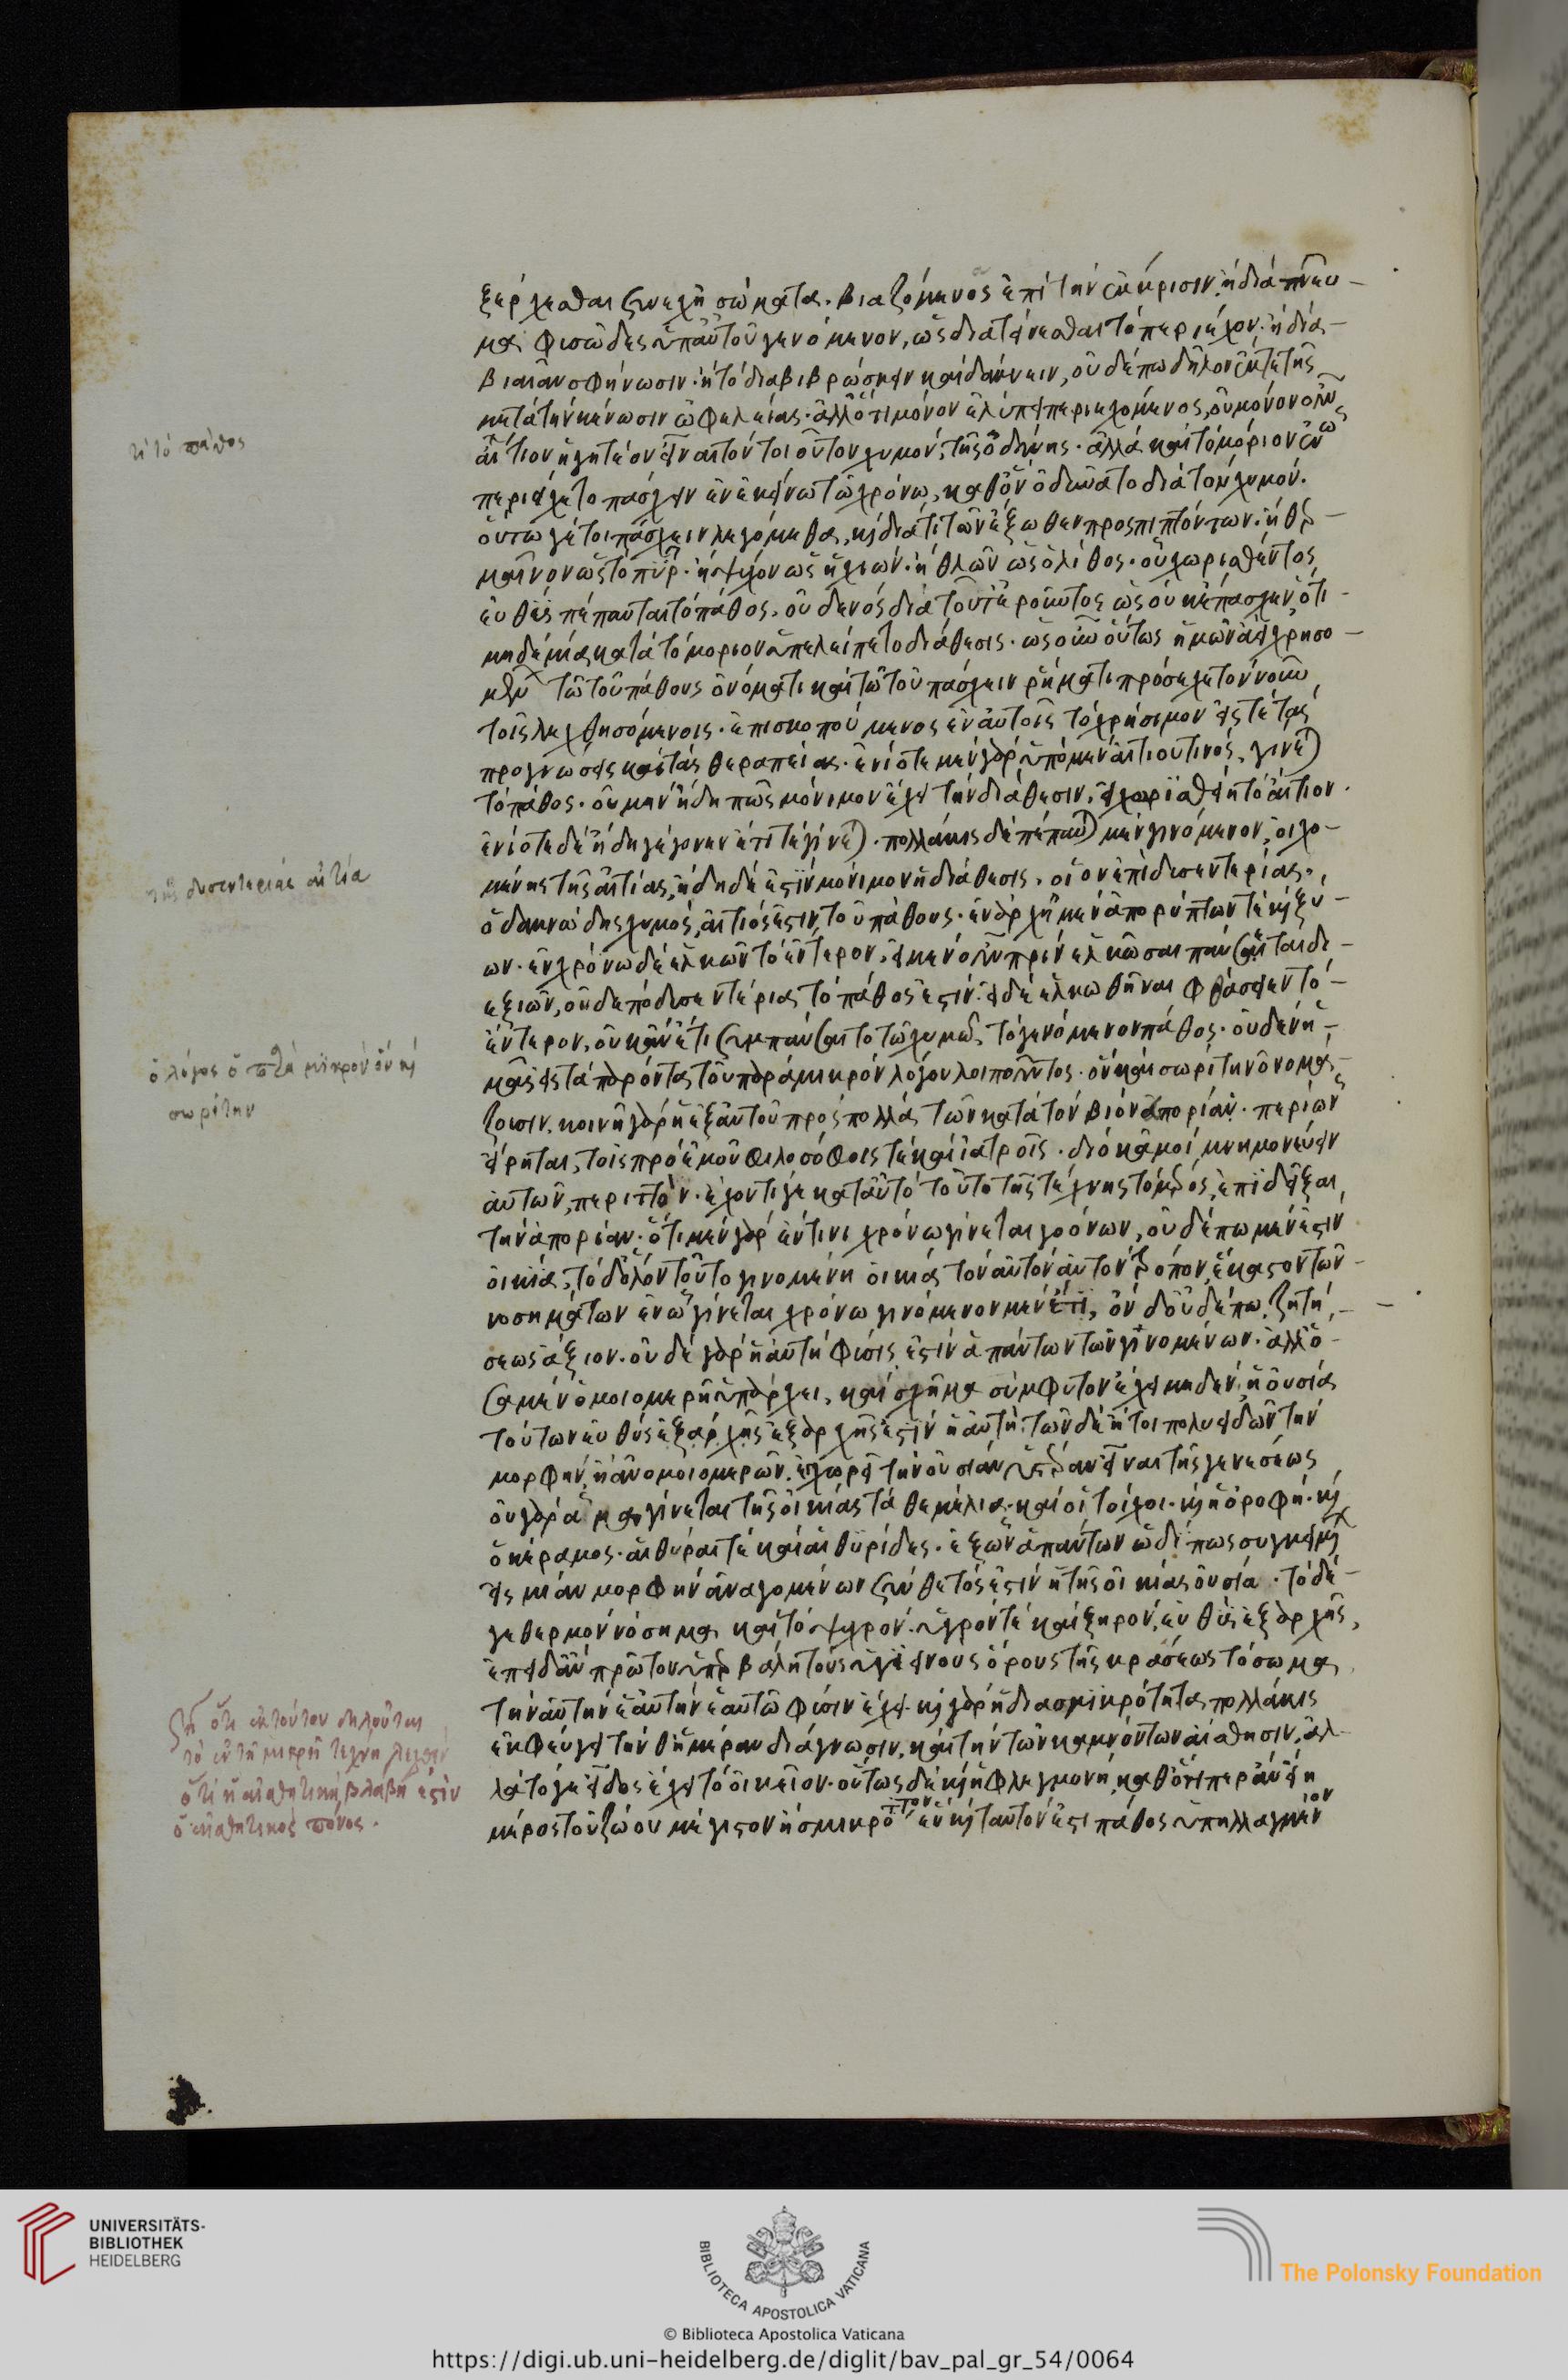 ξέρχεσθαι συνεχῆ σώματα. βιαζόμενος ἐπὶ τὴν ἔκκρισιν. ἢ διὰ πνεῦ-
μα φυσῶδες ὑπ' αὐτοῦ γενόμενον, ὡς διατείνεσθαι τὸ περιέχον. ἢ διὰ
βιαίαν σφήνωσιν. ἢ τὸ διαβιβρώσκειν καὶ δάκνειν, οὐδέπω δῆλον ἐκ γε τῆς
μετὰ τὴν κένωσιν ὠφελείας. ἀλλ' ὅτι μόνον ἐλύπει περιεχόμενος, οὐ μόνον οὖν
αἴτιον ἡγητέον εἶναι τὸν τοιοῦτον χυμόν, τῆς ὀδύνης. ἀλλὰ καὶ τὸ μόριον ἐν ᾧ
περιείχετο πάσχειν ἐν ἐκείνω τῶ χρόνω, καθ' ὃν ὀδυνᾶτο διὰ τὸν χυμόν.
οὕτω γέ τοι πάσχειν λεγόμεθα, κ̀ διά τι τῶν ἔξωθεν προσπιπτόντων. ἢ θερ-
μαῖνον ὡς τὸ πῦρ. ἢ ψύχον ὡς ἡ χιών. ἢ θλῶν ὡς ὁ λίθος. οὗ χωρισθέντος
εὐθὺς πέπαυται τὸ πάθος. οὐδενὸς διὰ τοῦτ' ἐροῦντος ὡς οὐκ ἔπασχεν ὅτι
μηδεμία κατὰ τὸ μόριον ὑπελείπετο διάθεσις. ὡς οὖν οὕτως ἡμῶν ἀεὶ χρησο-
μένων τῶ τοῦ πάθους ὀνόματι καὶ τῶ τοῦ πάσχειν ῥήματι πρόσεχε τὸν νοῦν
τοῖς λεχθησομένοις. ἐπισκοπούμενος ἐν αὐτοῖς τὸ χρήσιμον εἴς τε τὰς
προγνώσεις καὶ τὰς θεραπείας. ἐνίοτε μὲν γὰρ ὑπὸ μὲν αἰτίου τινός, γίνεται
τὸ πάθος. οὐ μὴν ἤδη πως μόνιμον ἔχει τὴν διάθεσιν, εἰ χωρισθείη τὸ αἴτιον.
ἐνίοτε δὲ ἤδη γέγονεν ἔτι τε γίνεται. πολλάκις δὲ πέπαυται μὲν γινόμενον, οἰχο-
μένης τῆς αἰτίας, ἤδη δέ ἐστιν μόνιμον ἡ διάθεσις. οἷον ἐπὶ δυσεντερίας.
ὁ δακνώδης χυμός, αἴτιός ἐστιν τοῦ πάθους. ἐν ἀρχῇ μὲν ἀπορύπτων τε κ̀ ξύ-
ων. ἐν χρόνω δὲ ἑλκῶν τὸ ἔντερον. εἰ μὲν οὖν πρὶν ἑλκῶσαι παύσαιτο δι-
εξιών, οὐδέπω δυσεντερίας τὸ πάθος ἐστίν. εἰ δὲ ἑλκωθῆναι φθάσειεν τὸ
ἔντερον, οὐκ ἂν ἔτι συμπαύσαιτο τῶ χυμῶ τὸ γενόμενον πάθος. οὐδὲν ἡ-
μᾶς εἰς τὰ παρόντα τοῦ παρὰ μικρὸν λόγου λυποῦντος. ὃν καὶ σωρίτην ὀνομά-
ζουσιν. κοινὴ γὰρ ἡ ἐξ αὐτοῦ πρὸς πολλὰ τῶν κατὰ τὸν βίον ἀπορία. περὶ ὧν
εἴρηται, τοῖς πρὸ ἐμοῦ φιλοσόφοις τε καὶ ἰατροῖς. διὸ κἀμοὶ μνημονεύειν
αὐτῶν, περιττόν. ἔχοντί γε κατ' αὐτὸ τοῦτο τῆς τέχνης τὸ μέρος, ἐπιδεῖξαι
τὴν ἀπορίαν. ὅτι μὲν γὰρ ἔν τινι χρόνω γίνεται γοόνων, οὐδέπω μέν ἐστιν
οἰκία, τὸ δ' ὅλον τοῦτο γινομένη οἰκία τὸν αὐτὸν αὐτὸν τρόπον, ἕκαστον τῶν
νοσημάτων ἐν ᾧ γίνεται χρόνω γινόμενον μὲν ἔτι, ὂν δ' οὐδέπω. ζητή-
σεως ἄξιον. οὐδὲ γὰρ ἡ αὐτὴ φύσις ἐστὶν ἁπάντων τῶν γινομένων. ἀλλ' ὅ-
σα μὲν ὁμοιομερῆ ὑπάρχει, καὶ σχῆμα σύμφυτον ἔχει μηδέν, ἡ οὐσία
τούτων εὐθὺς ἐξ ἀρχῆς ἐξ ἀρχῆς ἐστὶν ἡ αὐτή. τῶν δὲ ἤτοι πολυειδῶν τὴν
μορφήν, ἢ ἀνομοιομερῶν. ἐγχωρεῖ τὴν οὐσίαν ὑστέραν εἶναι τῆς γενέσεως
οὐ γὰρ ἅμα γίνεται τῆς οἰκίας τὰ θεμέλια. καὶ οἱ τοῖχοι. κ̀ ἡ ὀροφή. κ̀
ὁ κέραμος. αἱ θύραι τε καὶ αἱ θυρίδες. ἐξ ὧν ἁπάντων ὡδί πως συγκειμένων
εἰς μίαν μορφὴν ἀναγομένων σύνθετός ἐστιν ἡ τῆς οἰκίας οὐσία. τὸ δέ
γε θερμὸν νόσημα, καὶ τὸ ψυχρόν. ὑγρόν τε καὶ ξηρόν, εὐθὺς ἐξ ἀρχῆς,
ἐπειδὰν πρῶτον ὑπερβάλη τοὺς ὑγιεινοὺς ὅρους τῆς κράσεως τὸ σῶμα
τὴν αὐτὴν ἑαυτὴν ἑαυτῶ φύσιν ἔχει. κ̀ γὰρ ἢ διὰ σμικρότητα πολλάκις
ἐκφεύγει τὴν θ' ἡμέραν διάγνωσιν, καὶ τὴν τῶν καμνόντων αἴσθησιν, ἀλ-
λὰ τό γε εἶδος ἔχει τὸ οἰκεῖον. οὕτως δὲ κ̀ ἡ φλεγμονή, καθ' ὅτιπερ ἂν εἴη
μέρος τοῦ ζώου μέγιστον ἢ σμικρότατον ἕν κ̀ ταυτόν ἐστι πάθος ὑπηλλαγμένον
τί τὸ πάθος
τῆς δυσεντερίας αἰτία
ὁ λόγος ὁ παρὰ μικρὸν ὃν κ̀
σωρίτην
ὅτι ἐκ τούτου δηλοῦται
τὸ ἐν τῆ μικρῆ τέχνη λεχθὲν
ὅτι ἡ αἰσθητικὴ βλάβη ἐστὶν
ὁ αἰσθητικὸς πόνος.
UNIVERSITÄTS-
BIBLIOTHEK
HEIDELBERG
BIBLIOTECA APOSTOLICA VATICANA
The Polonsky Foundation
© Biblioteca Apostolica Vaticana
https://digi.ub.uni-heidelberg.de/diglit/bav_pal_gr_54/0064